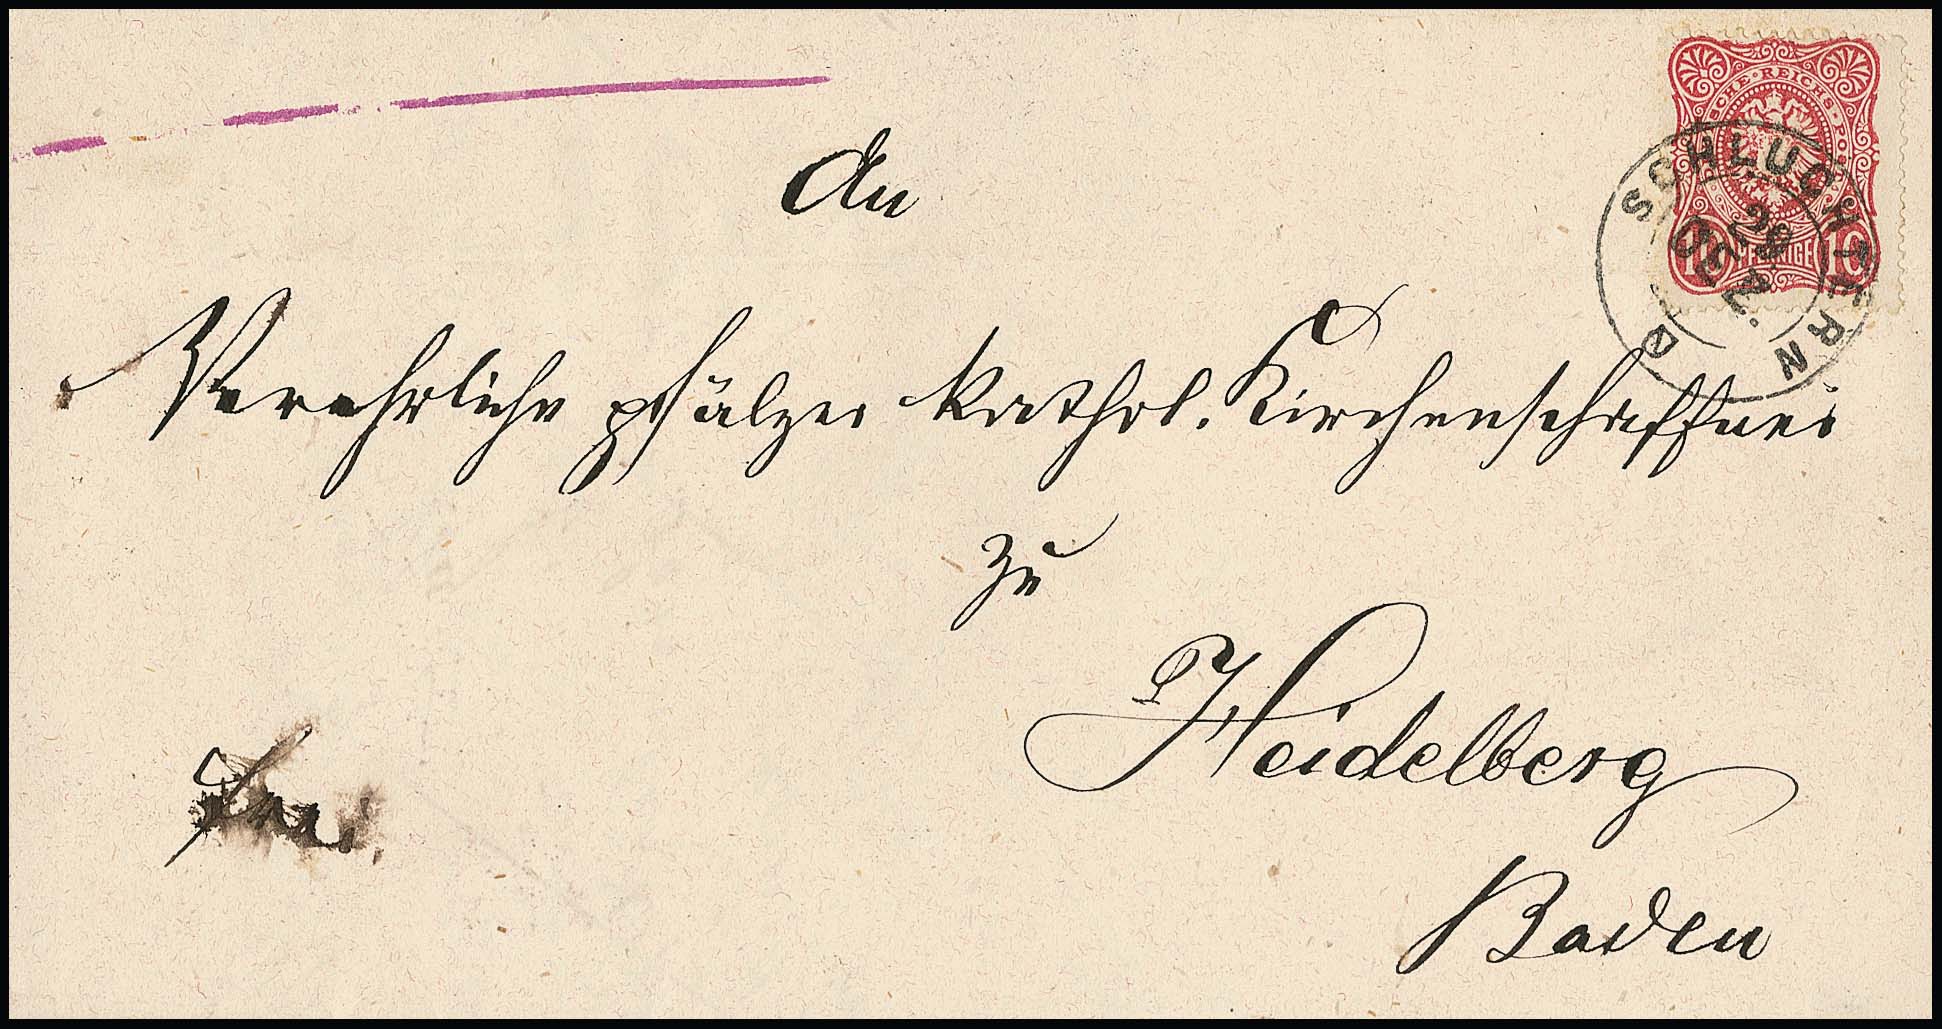 An
Verehrliche pfälzer kathol. Kirchenschaffnei
zu
Heidelberg
Baden
SCHLUCHTERN
29
DEZ.
SCHE·REICHS-POS
10 PFENNIGE 10